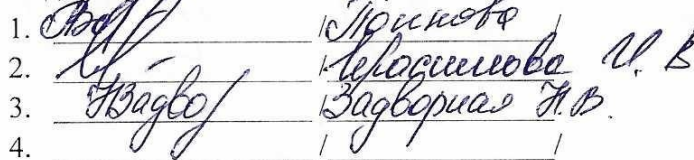 1. /Поинова/
2. /Герасимова И. В
3. НЗадво /Задворная Н.В.
4. / /